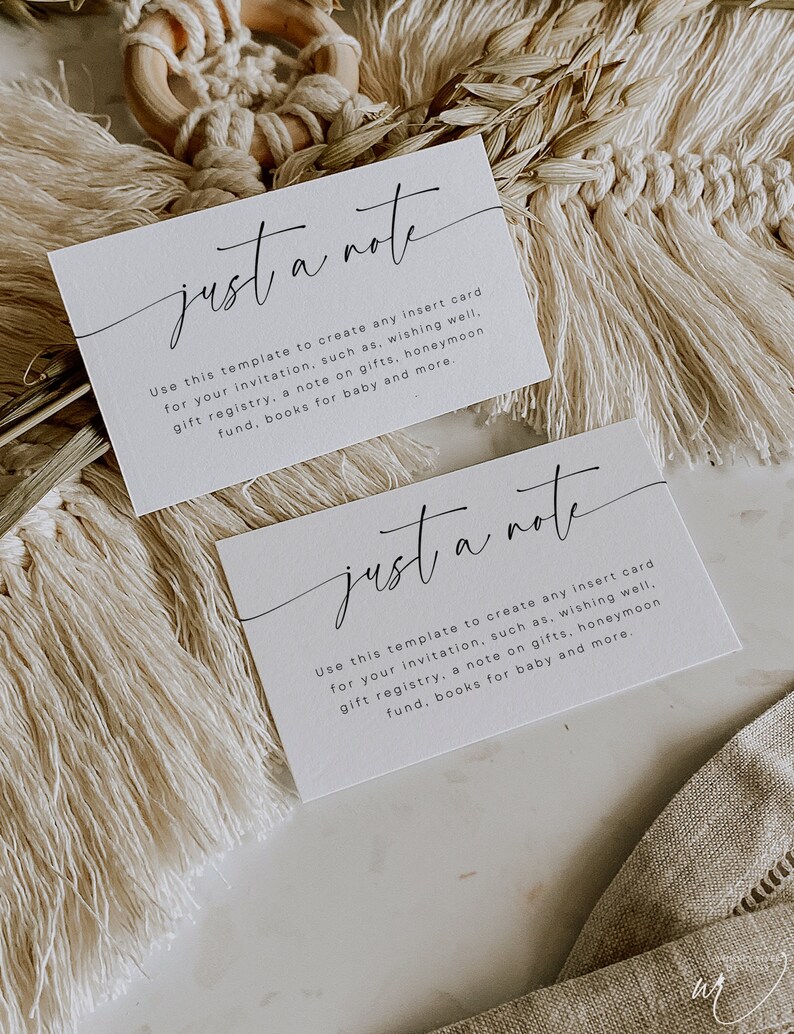 just a note
Use this template to create any insert card
for your invitation, such as, wishing well,
gift registry, a note on gifts, honeymoon
fund, books for baby and more.
just a note
Use this template to create any insert card
for your invitation, such as, wishing well,
gift registry, a note on gifts, honeymoon
fund, books for baby and more.